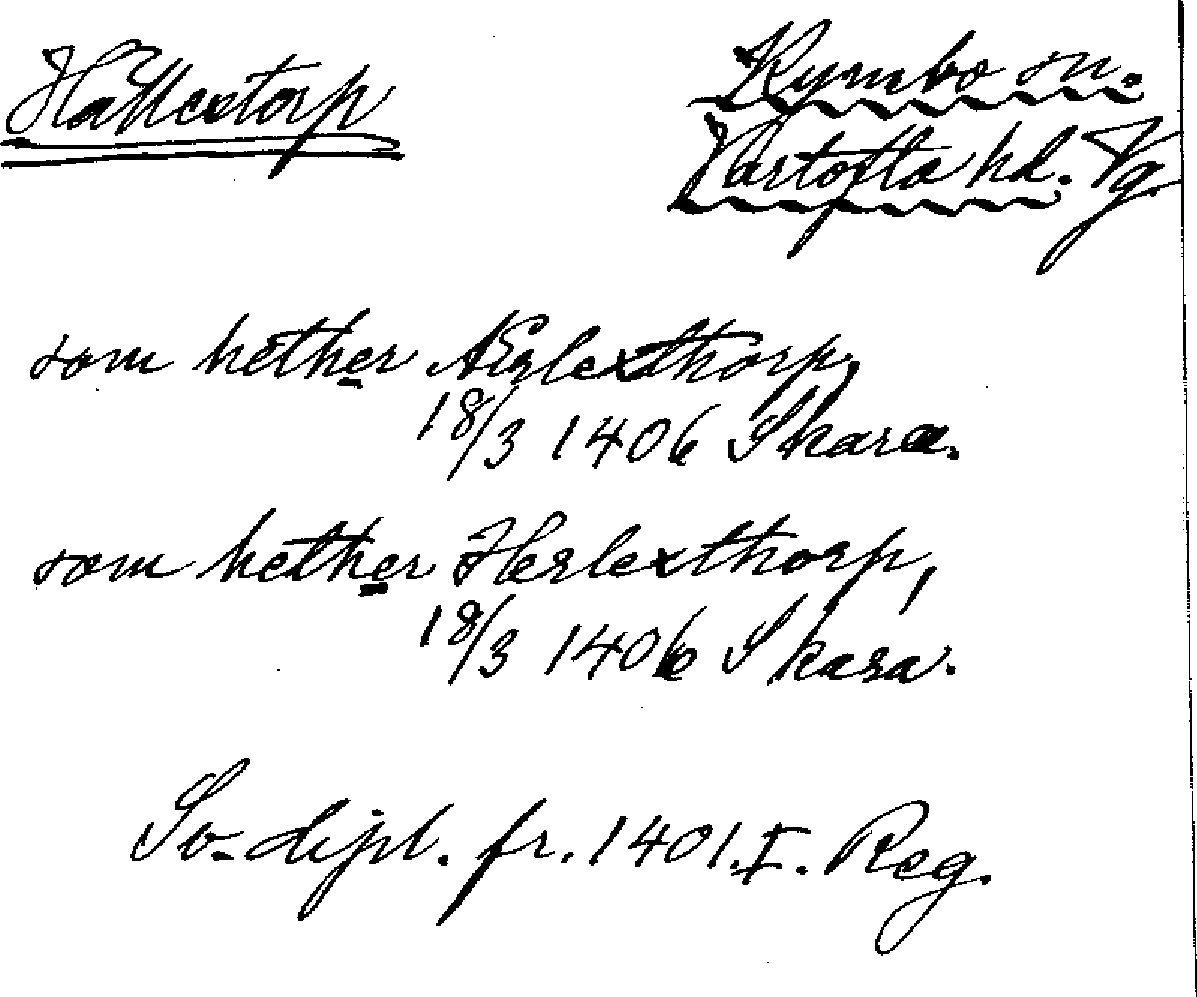 Hällestorp
Kymbo sn.
Vartofta hd. Vg.
som hether Herlexthorp,
18/3 1406 Skara.
som hether Herlexthorp,
18/3 1406 Skara.
Sv. dipl. fr. 1401. I. Reg.